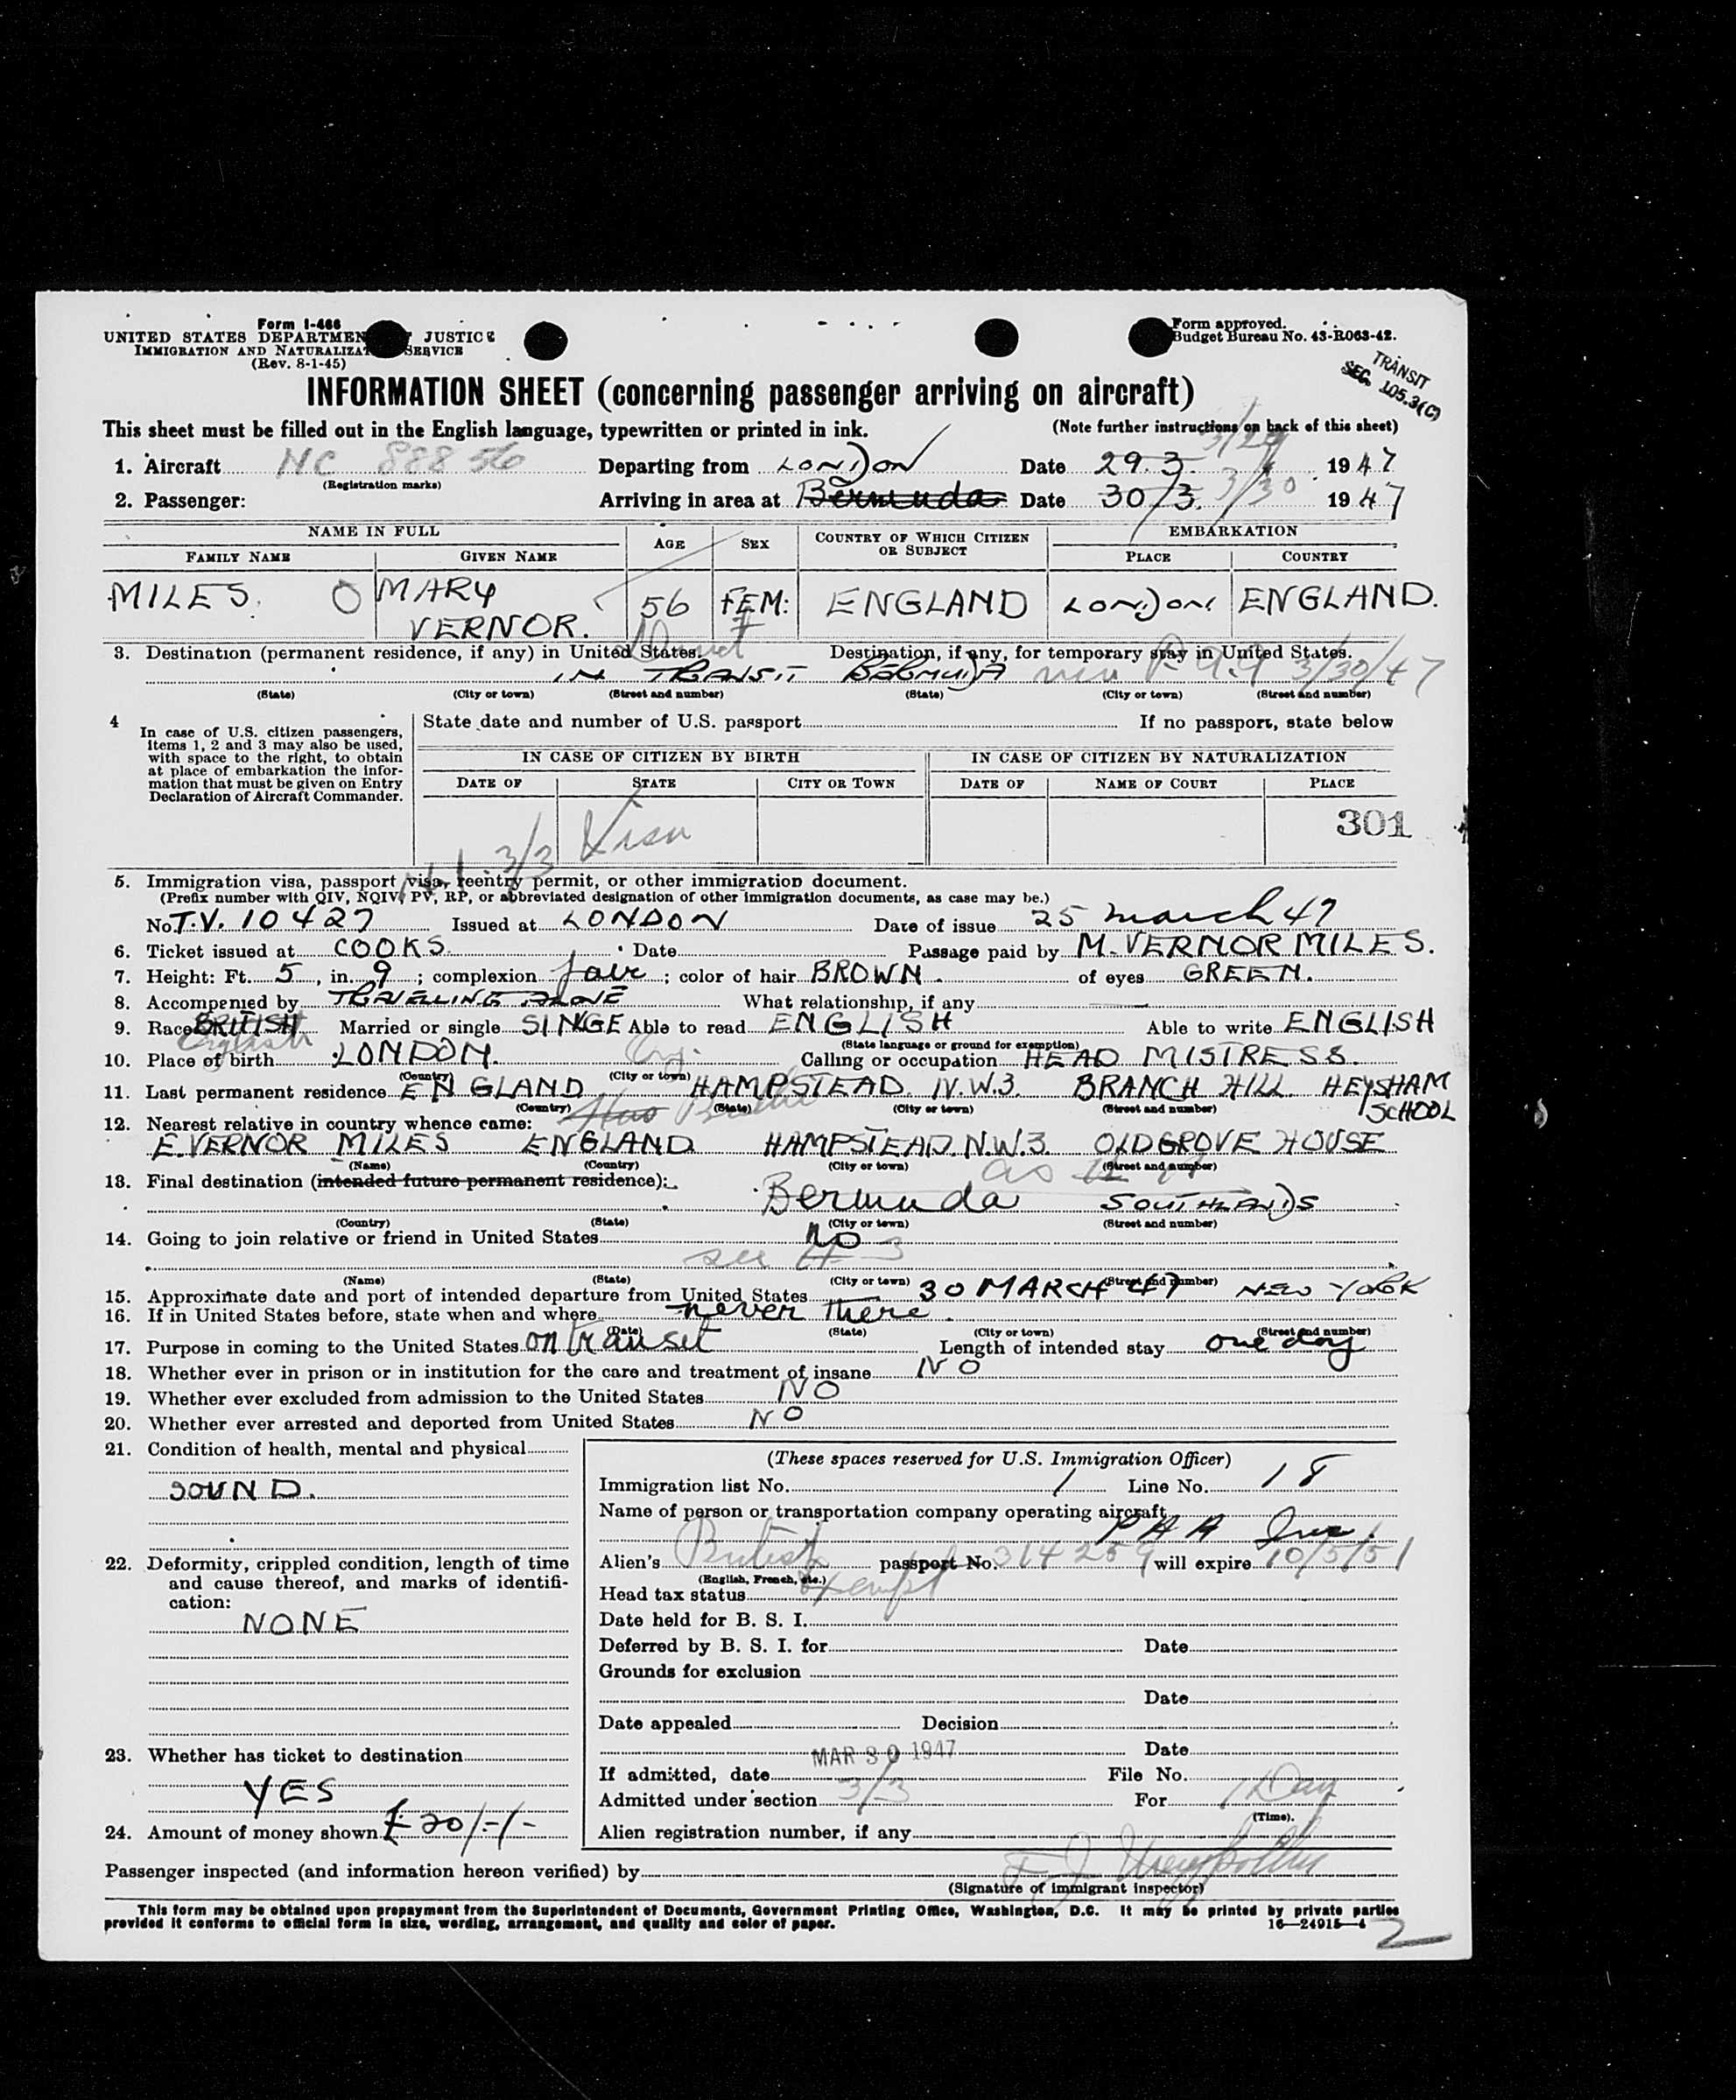 Form I-466
UNITED STATES DEPARTMEN JUSTICE
IMMIGRATION AND NATURALIZAT SERVICE
(Rev. 8-1-45)
Form approved.
Budget Bureau No. 43-R063-42.
TRANSIT
SEC. 105.3(C)
INFORMATION SHEET (concerning passenger arriving on aircraft)
This sheet must be filled out in the English language, typewritten or printed in ink. (Note further instructions on back of this sheet)
3/29
1. Aircraft NC 88856 Departing from LONDON Date 29.3. 1947
(Registration marks)
2. Passenger: Arriving in area at Bermuda Date 30/3. 3/30 1947
NAME IN FULL AGE SEX COUNTRY OF WHICH CITIZEN OR SUBJECT EMBARKATION
FAMILY NAME GIVEN NAME PLACE COUNTRY
MILES. O MARY VERNOR. 56 FEM: ENGLAND LONDON ENGLAND.
3. Destination (permanent residence, if any) in United States. Destination, if any, for temporary stay in United States.
IN TRANSIT BERMUDA 3/30/47
(State) (City or town) (Street and number) (State) (City or town) (Street and number)
4 In case of U.S. citizen passengers, items 1, 2 and 3 may also be used, with space to the right, to obtain at place of embarkation the information that must be given on Entry Declaration of Aircraft Commander.
State date and number of U.S. passport If no passport, state below
IN CASE OF CITIZEN BY BIRTH IN CASE OF CITIZEN BY NATURALIZATION
DATE OF STATE CITY OR TOWN DATE OF NAME OF COURT PLACE
3/3 Visa 301
5. Immigration visa, passport visa, reentry permit, or other immigration document.
(Prefix number with QIV, NQIV, PV, RP, or abbreviated designation of other immigration documents, as case may be.)
No. T.V. 10427 Issued at LONDON Date of issue 25 March 47
6. Ticket issued at COOKS. Date Passage paid by M. VERNOR MILES.
7. Height: Ft. 5, in. 9; complexion fair; color of hair BROWN. of eyes GREEN.
8. Accompanied by TRAVELLING ALONE What relationship, if any
9. Race BRITISH Married or single SINGE Able to read ENGLISH Able to write ENGLISH
English
(State language or ground for exemption)
10. Place of birth LONDON. Eng. Calling or occupation HEAD MISTRESS.
(Country) (City or town)
11. Last permanent residence ENGLAND HAMPSTEAD. N.W.3. BRANCH HILL. HEYSHAM SCHOOL
(Country) (State) (City or town) (Street and number)
12. Nearest relative in country whence came:
E. VERNOR MILES ENGLAND HAMPSTEAD. N.W.3. OLDGROVE HOUSE
(Name) (Country) (City or town) (Street and number)
13. Final destination (intended future permanent residence):
Bermuda SOUTHLANDS
(Country) (State) (City or town) (Street and number)
14. Going to join relative or friend in United States NO
see # 3
(Name) (State) (City or town) (Street and number)
15. Approximate date and port of intended departure from United States 30 MARCH 47 NEW YORK
16. If in United States before, state when and where never there.
(Date) (State) (City or town) (Street and number)
17. Purpose in coming to the United States on transit Length of intended stay one day
18. Whether ever in prison or in institution for the care and treatment of insane NO
19. Whether ever excluded from admission to the United States NO
20. Whether ever arrested and deported from United States NO
21. Condition of health, mental and physical
SOUND.
22. Deformity, crippled condition, length of time and cause thereof, and marks of identification:
NONE
23. Whether has ticket to destination
YES
24. Amount of money shown £20/-/-
(These spaces reserved for U.S. Immigration Officer)
Immigration list No. 1 Line No. 18
Name of person or transportation company operating aircraft
PAA Inc.
Alien's British passport No. 314259 will expire 10/5/51
(English, French, etc.)
Head tax status Exempt
Date held for B. S. I.
Deferred by B. S. I. for Date
Grounds for exclusion
Date
Date appealed Decision
MAR 30 1947 Date
If admitted, date File No.
Admitted under section 3/3 For 1 Day
(Time).
Alien registration number, if any
Passenger inspected (and information hereon verified) by
(Signature of immigrant inspector)
This form may be obtained upon prepayment from the Superintendent of Documents, Government Printing Office, Washington, D.C. It may be printed by private parties
provided it conforms to official form in size, wording, arrangement, and quality and color of paper. 16—24915-4
2